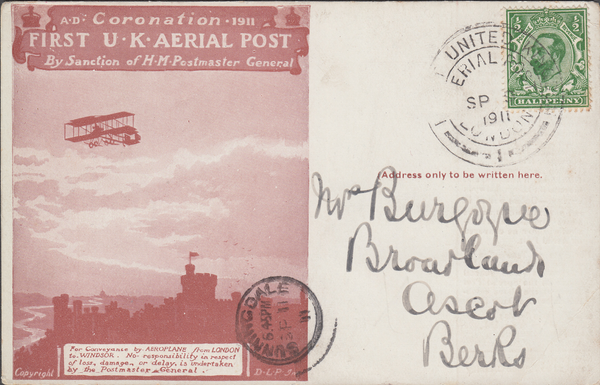 A·D· Coronation · 1911
FIRST U·K·AERIAL POST
By Sanction of H·M·Postmaster General
UNITED
AERIAL
SP
1911
LONDON
1
½ ½
HALFPENNY
Address only to be written here.
Mrs Burgoyne
Broadlands
Ascot
Berks
SUNNINGDALE
For Conveyance by AEROPLANE from LONDON
to WINDSOR. No responsibility in respect
of loss, damage, or delay, is undertaken
by the Postmaster General.
Copyright